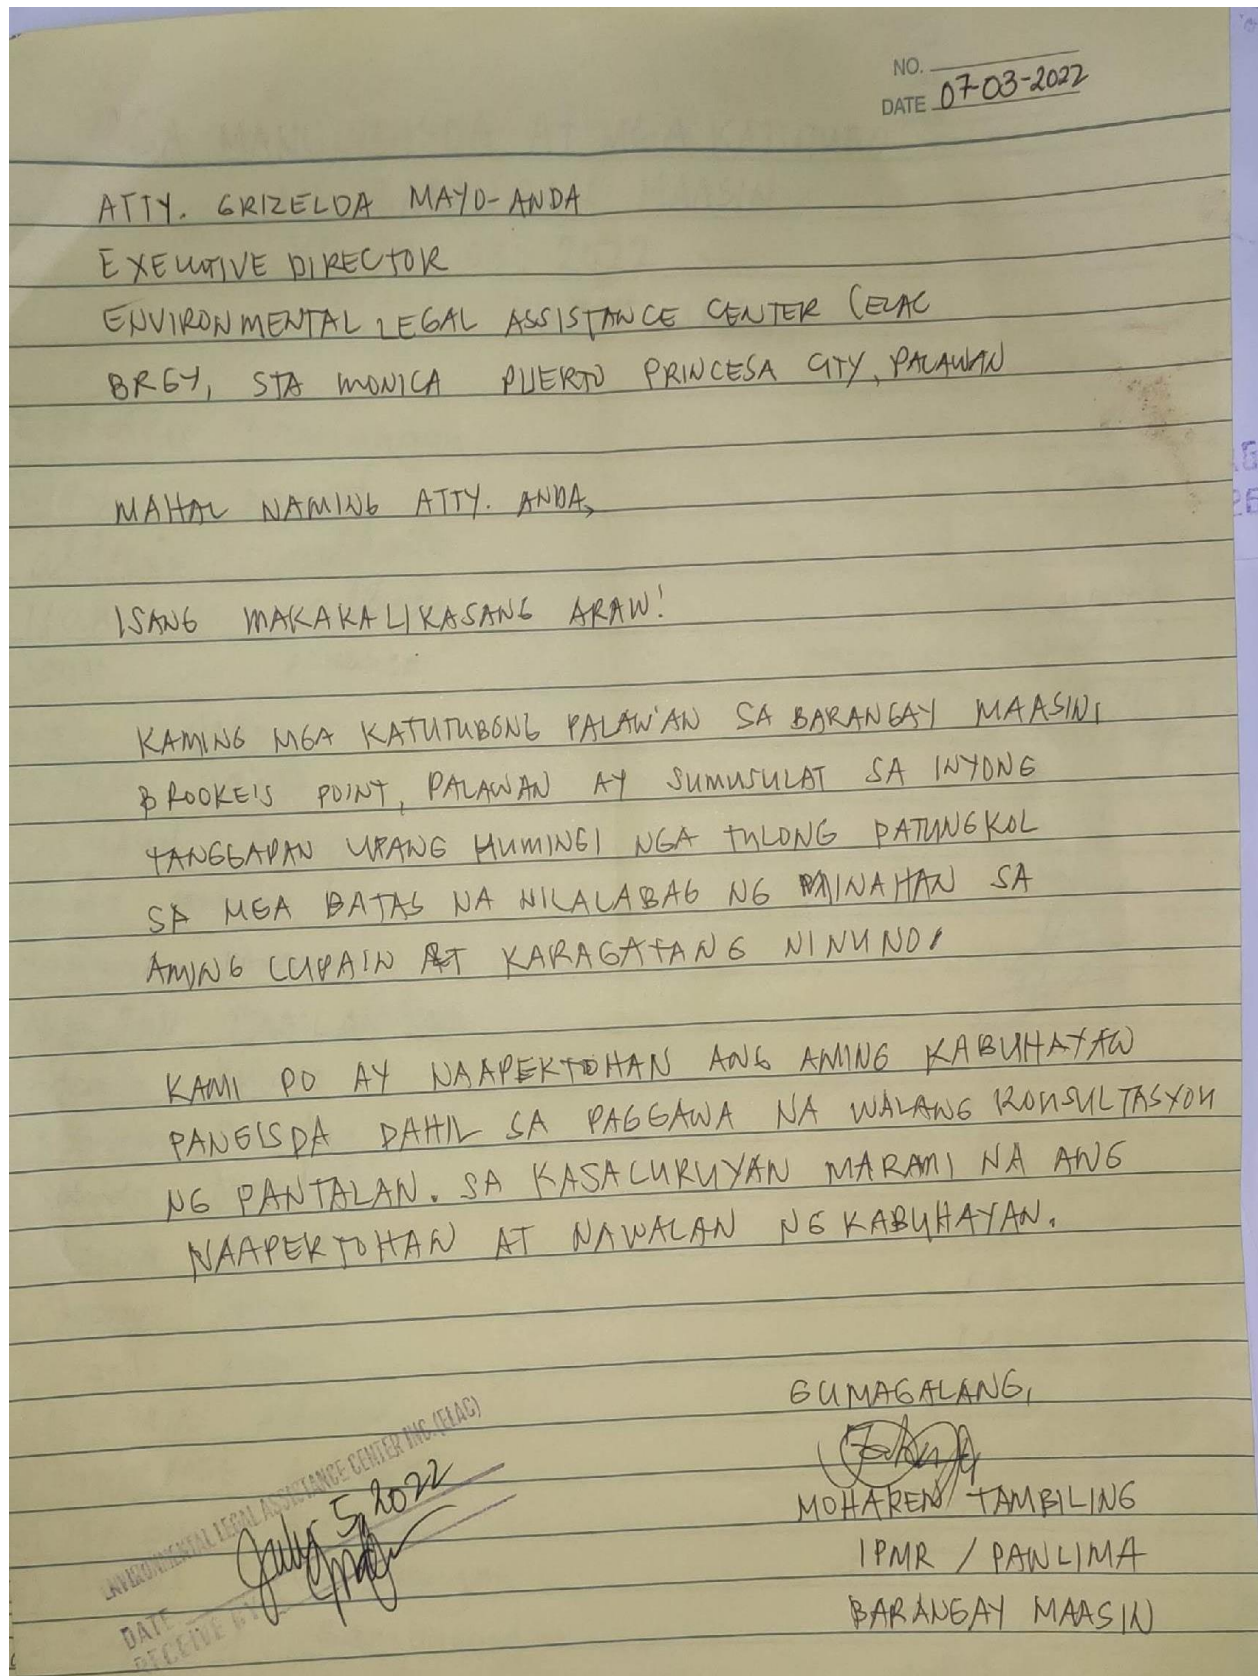 NO.
DATE 07-03-2022
ATTY. GRIZELDA MAYO-ANDA
EXECUTIVE DIRECTOR
ENVIRONMENTAL LEGAL ASSISTANCE CENTER (ELAC
BRGY, STA MONICA PUERTO PRINCESA CITY, PALAWAN
MAHAL NAMING ATTY. ANDA,
ISANG MAKAKALIKASANG ARAW!
KAMING MGA KATUTUBONG PALAW'AN SA BARANGAY MAASIN,
BROOKE'S POINT, PALAWAN AY SUMUSULAT SA INYONG
TANGGAPAN UPANG HUMINGI NGA TULONG PATUNGKOL
SA MGA BATAS NA NILALABAG NG MINAHAN SA
AMING LUPAIN AT KARAGATANG NINUNO.
KAMI PO AY NAAPEKTOHAN ANG AMING KABUHAYAN
PANGISDA DAHIL SA PAGGAWA NA WALANG KONSULTASYON
NG PANTALAN. SA KASALUKUYAN MARAMI NA ANG
NAAPEKTOHAN AT NAWALAN NG KABUHAYAN.
GUMAGALANG,
MOHAREN TAMBILING
IPMR / PANLIMA
BARANGAY MAASIN
ENVIRONMENTAL LEGAL ASSISTANCE CENTER INC. (ELAC)
July 5, 2022
DATE
RECEIVE BY